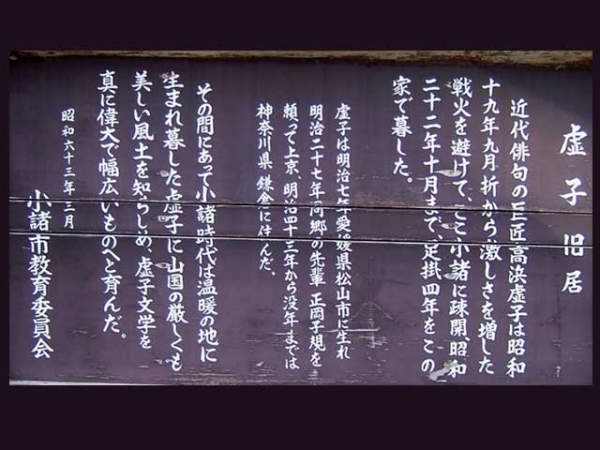 虚子旧居
近代俳句の巨匠高浜虚子は昭和
十九年九月折から激しさを増した
戦火を避けて、ここ小諸に疎開昭和
二十二年十月まで、足掛四年をこの
家で暮した。
虚子は明治七年愛媛県松山市に生れ
明治二十七年同郷の先輩 正岡子規を
頼って上京、明治四十三年から没年までは
神奈川県 鎌倉に住んだ。
その間にあって小諸時代は温暖の地に
生まれ暮した虚子に山国の厳しくも
美しい風土を知らしめ、虚子文学を
真に偉大で幅広いものへと育んだ。
昭和六十三年三月
小諸市教育委員会